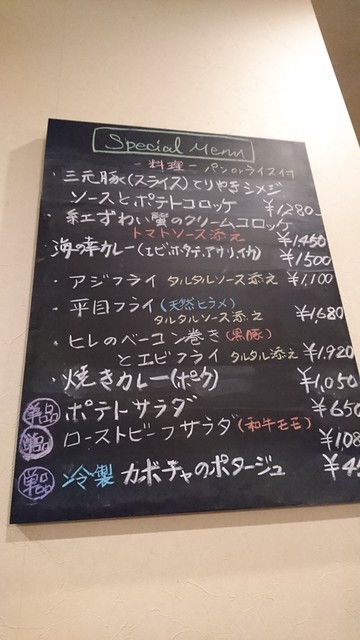 Special Menu
- 料理 - パンorライス付
・三元豚(スライス)てりやきシメジ
ソースとポテトコロッケ ¥1280-
・紅ずわい蟹のクリームコロッケ
トマトソース添え ¥1450
海の幸カレー(エビ、ホタテ、アサリ、イカ) ¥1500
・アジフライ タルタルソース添え ¥1,100
・平目フライ(天然ヒラメ)
タルタルソース添え ¥1,680
・ヒレのベーコン巻き(黒豚)
とエビフライ タルタル添え ¥1,920
・焼きカレー(ポーク) ¥1,050
単品 ポテトサラダ ¥650
単品 ローストビーフサラダ(和牛モモ) ¥108
単品 冷製 カボチャのポタージュ ¥4